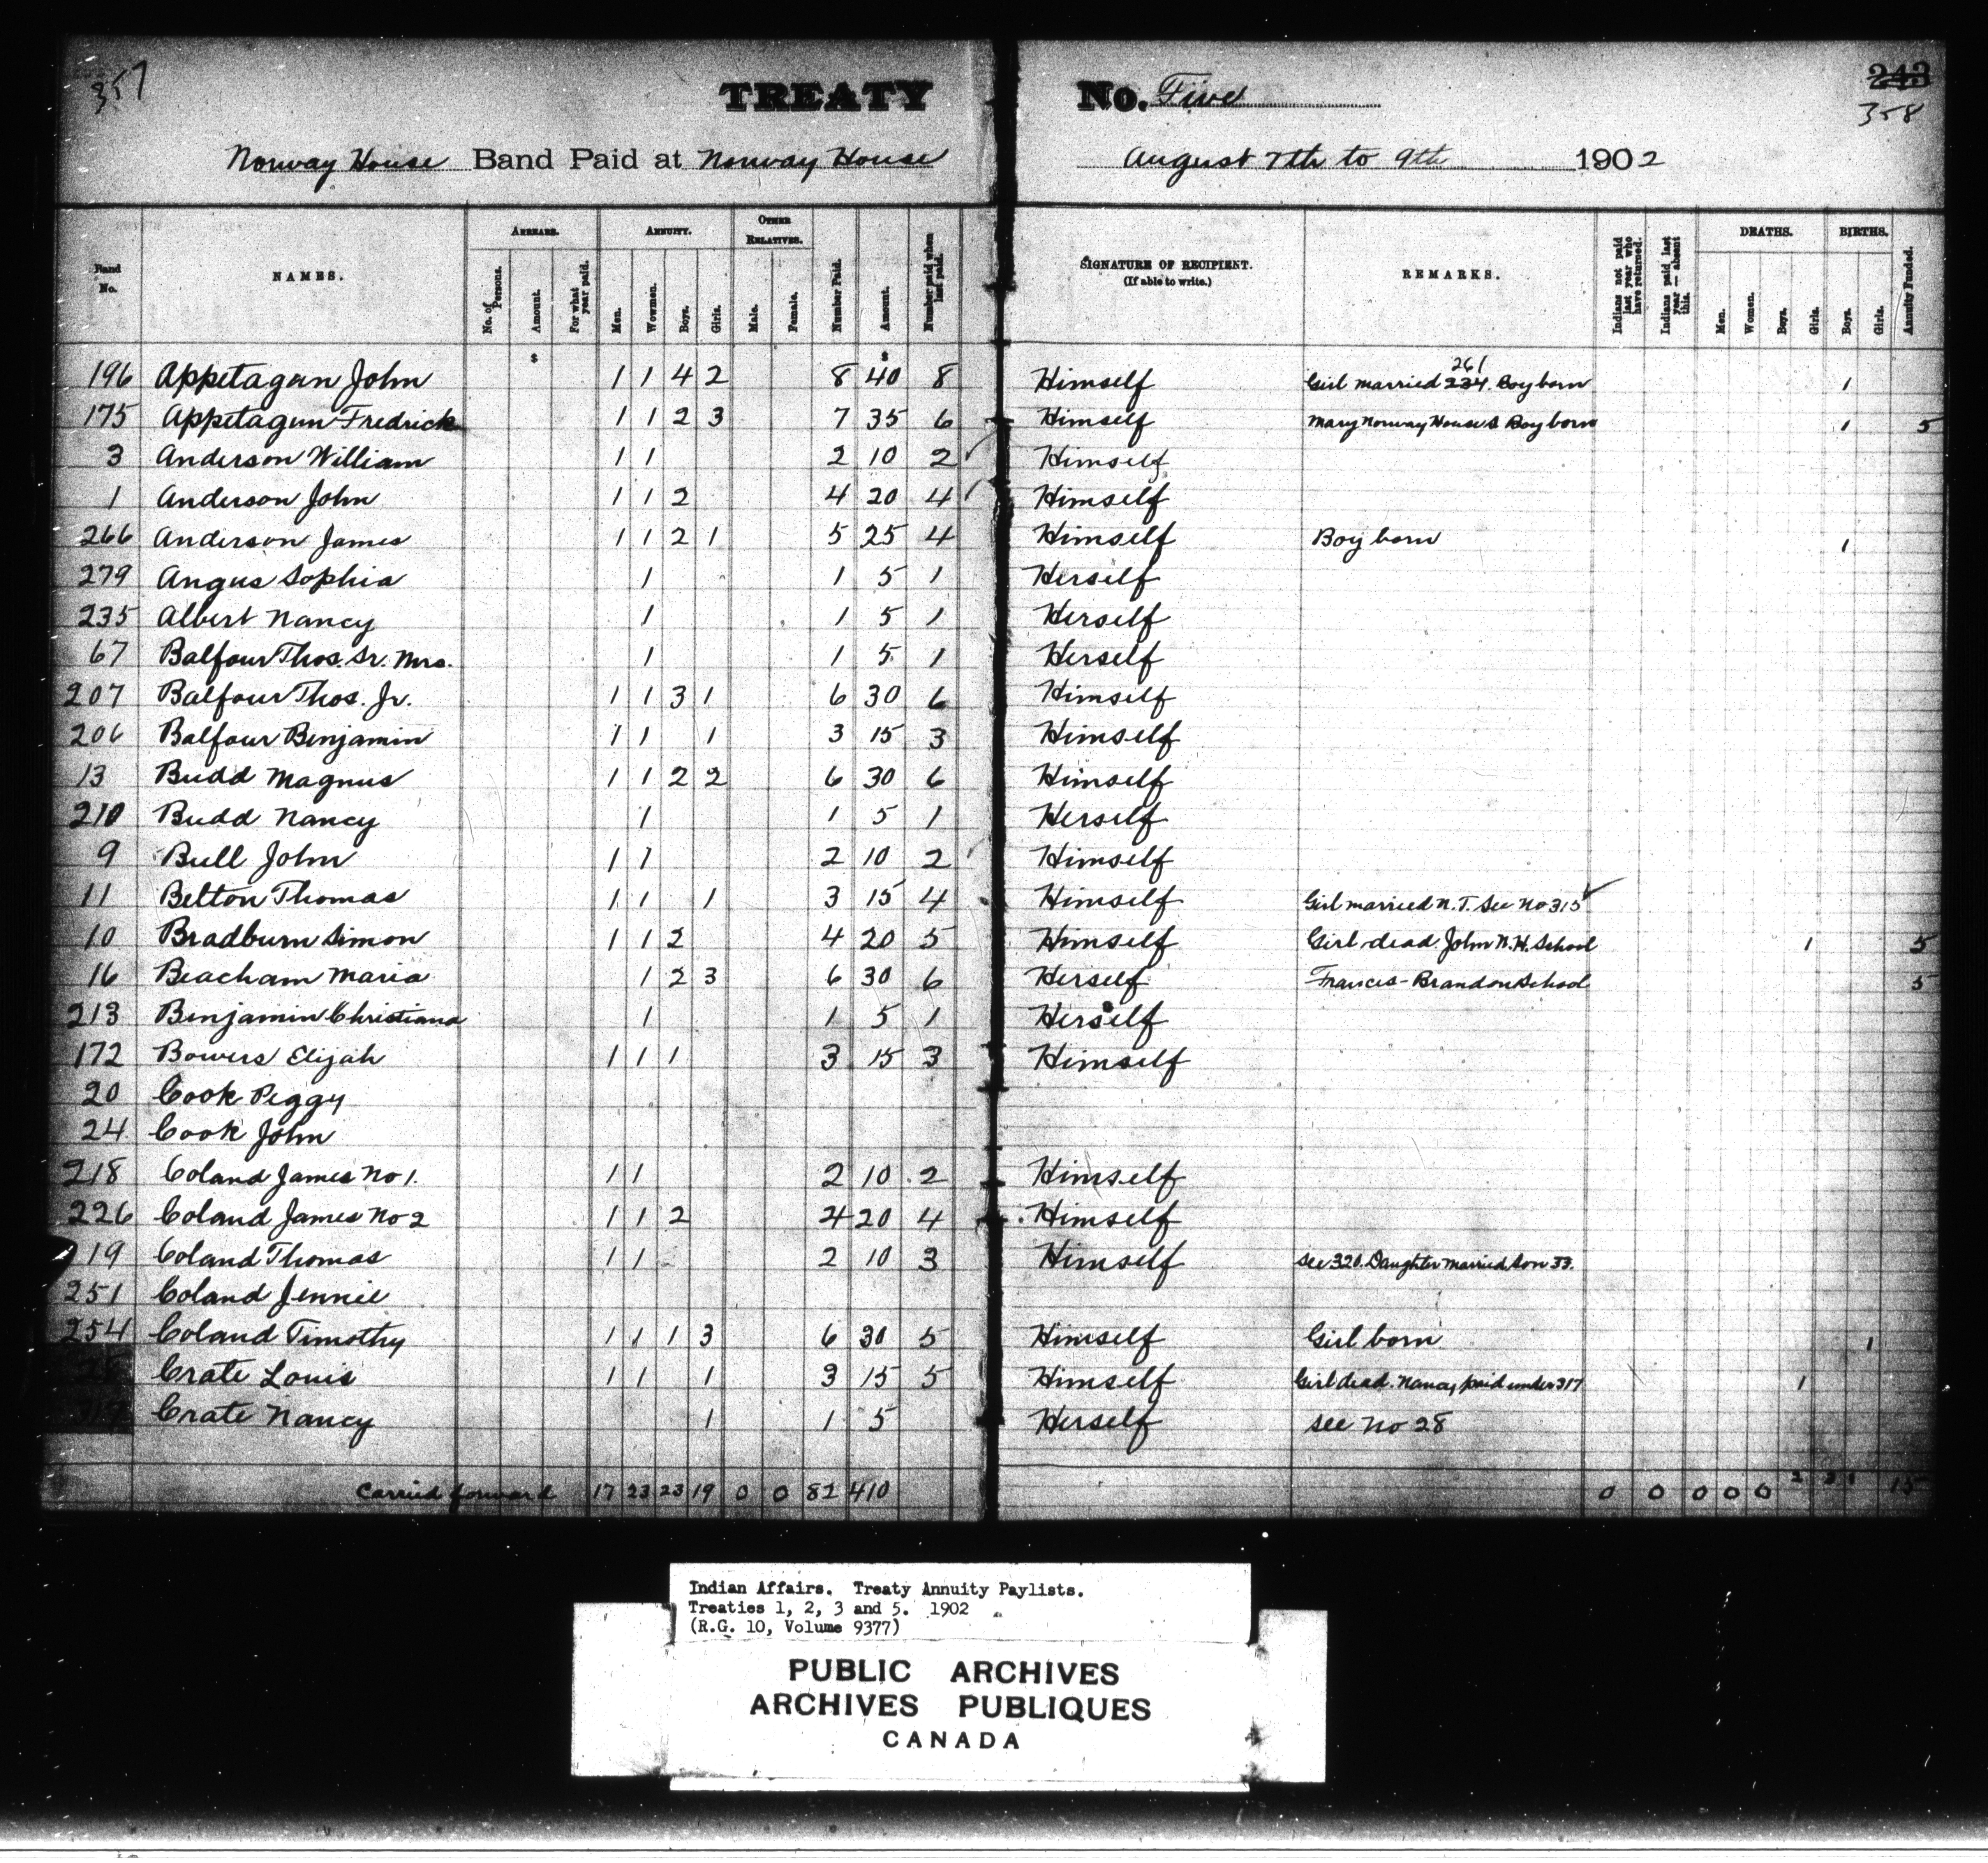 357
TREATY No. Five
243
358
Norway House Band Paid at Norway House August 7th to 9th 1902
Band No. NAMES. ARREARS. No. of Persons. Amount. For what year paid. ANNUITY. Men. Wowmen. Boys. Girls. OTHER RELATIVES. Male. Female. Number Paid. Amount. Number paid when last paid. SIGNATURE OF RECIPIENT. (If able to write.) REMARKS. Indians not paid last year who have returned. Indians paid last year — absent this. DEATHS. Men. Women. Boys. Girls. BIRTHS. Boys. Girls. Annuity Funded.
$ $
196 Appetagun John 1 1 4 2 8 40 8 Himself Girl married 234. 261 Boy born 1
175 Appetagun Fredrick 1 1 2 3 7 35 6 Himself Mary Norway House S Boy born 1 5
3 Anderson William 1 1 2 10 2 Himself
1 Anderson John 1 1 2 4 20 4 Himself
266 Anderson James 1 1 2 1 5 25 4 Himself Boy born 1
279 Angus Sophia 1 1 5 1 Herself
235 Albert Nancy 1 1 5 1 Herself
67 Balfour Thos. Sr. Mrs. 1 1 5 1 Herself
207 Balfour Thos. Jr. 1 1 3 1 6 30 6 Himself
206 Balfour Benjamin 1 1 1 3 15 3 Himself
13 Budd Magnus 1 1 2 2 6 30 6 Himself
210 Budd Nancy 1 1 5 1 Herself
9 Bull John 1 1 2 10 2 Himself
11 Belton Thomas 1 1 1 3 15 4 Himself Girl married N.T. See No 315
10 Bradburn Simon 1 1 2 4 20 5 Himself Girl dead. John N.H. School 1 5
16 Beacham Maria 1 2 3 6 30 6 Herself Francis - Brandon School 5
213 Benjamin Christiana 1 1 5 1 Herself
172 Bowers Elijah 1 1 1 3 15 3 Himself
20 Cook Peggy
24 Cook John
218 Coland James No 1. 1 1 2 10 2 Himself
226 Coland James No 2 1 1 2 4 20 4 Himself
119 Coland Thomas 1 1 2 10 3 Himself See 320. Daughter married Son 33.
251 Coland Jennie
254 Coland Timothy 1 1 1 3 6 30 5 Himself Girl born 1
Crate Louis 1 1 1 3 15 5 Himself Girl dead. Nancy paid under 317 1
Crate Nancy 1 1 5 Herself See No 28
Carried forward 17 23 23 19 0 0 82 410 0 0 0 0 0 2 3 1 15
Indian Affairs. Treaty Annuity Paylists.
Treaties 1, 2, 3 and 5. 1902
(R.G. 10, Volume 9377)
PUBLIC ARCHIVES
ARCHIVES PUBLIQUES
CANADA